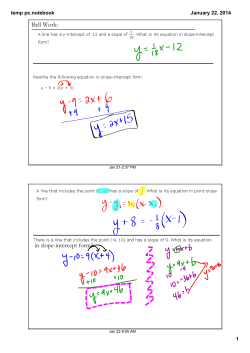 temp pc.notebook
January 22, 2014
Bell Work:
A line has a y-intercept of -12 and a slope of 1/18. What is its equation in slope-intercept
form?
y = 1/18 x - 12
Rewrite the following equation in slope-intercept form.
y − 9 = 2(x + 3)
y - 9 = 2x + 6
+9 + 9
y = 2x + 15
Jan 21-2:37 PM
A line that includes the point has a slope of What is its equation in point-slope
form?
y - y₁ = m(x - x₁)
y + 8 = -1/8(x - 1)
There is a line that includes the point (-4, 10) and has a slope of 9. What is its equation
in slope-intercept form?
y - 10 = 9(x + 4)
y - 10 = 9x + 36
+10 +10
y = 9x + 46
y = mx + b
y = 9x + b
10 = -36 + b
46 = b
Jan 22-8:05 AM
1